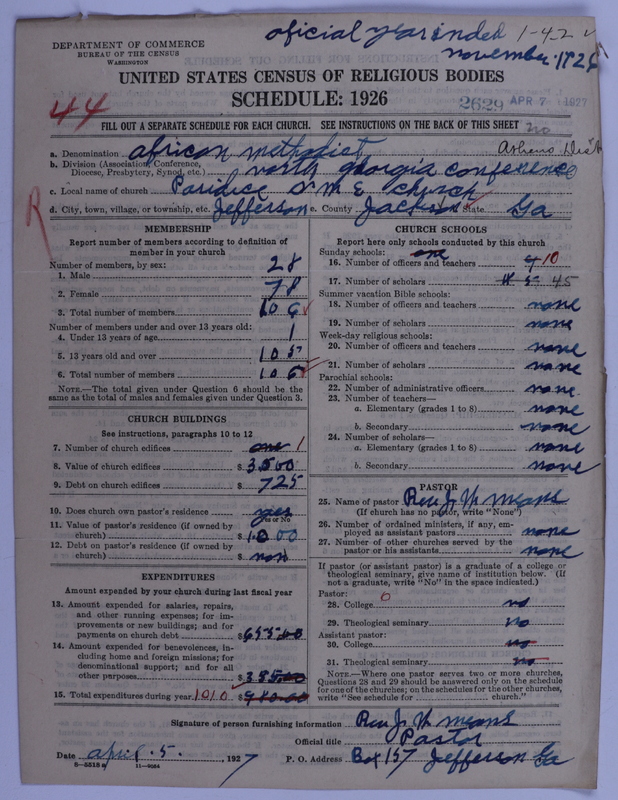 oficial year ended 1-42
november. 1926
DEPARTMENT OF COMMERCE
BUREAU OF THE CENSUS
WASHINGTON
UNITED STATES CENSUS OF RELIGIOUS BODIES
SCHEDULE: 1926
44
2629 APR 7 1927
FILL OUT A SEPARATE SCHEDULE FOR EACH CHURCH. SEE INSTRUCTIONS ON THE BACK OF THIS SHEET
no
a. Denomination african methodist Athens Dist
b. Division (Association, Conference, Diocese, Presbytery, Synod, etc.) north georgia conference
c. Local name of church Paridice A M E church
R
d. City, town, village, or township, etc. Jefferson e. County Jackson State Ga
MEMBERSHIP
Report number of members according to definition of
member in your church
Number of members, by sex:
1. Male 28
2. Female 78
3. Total number of members 106
Number of members under and over 13 years old:
4. Under 13 years of age 1
5. 13 years old and over 105
6. Total number of members 106
NOTE.—The total given under Question 6 should be the
same as the total of males and females given under Question 3.
CHURCH BUILDINGS
See instructions, paragraphs 10 to 12
7. Number of church edifices one 1
8. Value of church edifices $ 3500
9. Debt on church edifices $ 725
10. Does church own pastor's residence yes
Yes or No
11. Value of pastor's residence (if owned by
church) $ 1000
12. Debt on pastor's residence (if owned by
church) $ non
EXPENDITURES
Amount expended by your church during last fiscal year
13. Amount expended for salaries, repairs,
and other running expenses; for im-
provements or new buildings; and for
payments on church debt $
14. Amount expended for benevolences, in-
cluding home and foreign missions; for
denominational support; and for all
other purposes $ 385.00
15. Total expenditures during year 1010 $
CHURCH SCHOOLS
Report here only schools conducted by this church
Sunday schools: one
16. Number of officers and teachers 4 10
17. Number of scholars 45
Summer vacation Bible schools:
18. Number of officers and teachers none
19. Number of scholars none
Week-day religious schools:
20. Number of officers and teachers none
21. Number of scholars none
Parochial schools:
22. Number of administrative officers none
23. Number of teachers—
a. Elementary (grades 1 to 8) none
b. Secondary none
24. Number of scholars—
a. Elementary (grades 1 to 8) none
b. Secondary none
PASTOR
25. Name of pastor Rev J W means
(If church has no pastor, write "None")
26. Number of ordained ministers, if any, em-
ployed as assistant pastors none
27. Number of other churches served by the
pastor or his assistants none
If pastor (or assistant pastor) is a graduate of a college or
theological seminary, give name of institution below. (If
not a graduate, write "No" in the space indicated.)
Pastor: 0
28. College no
29. Theological seminary no
Assistant pastor:
30. College no
31. Theological seminary no
NOTE.—Where one pastor serves two or more churches,
Questions 28 and 29 should be answered only on the schedule
for one of the churches; on the schedules for the other churches,
write "See schedule for church."
Signature of person furnishing information Rev J W means
Official title Pastor
Date april. 5. 1927
P. O. Address Box 157 Jefferson Ga
8-5518a 11-9064